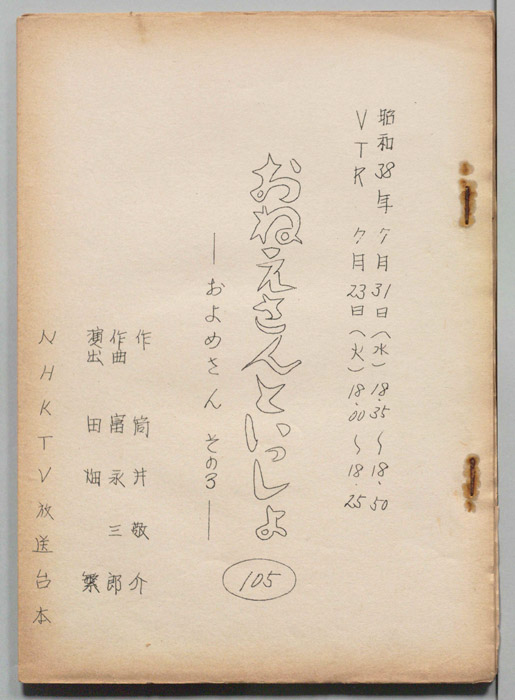 昭和38年7月31日(水)18.35〜18.50
VTR 7月23日(火)18.00〜18.25
おねえさんといっしょ
―およめさん その3―
105
作 筒井敬介
作曲 冨永三郎
演出 田畑繁
NHKTV放送台本